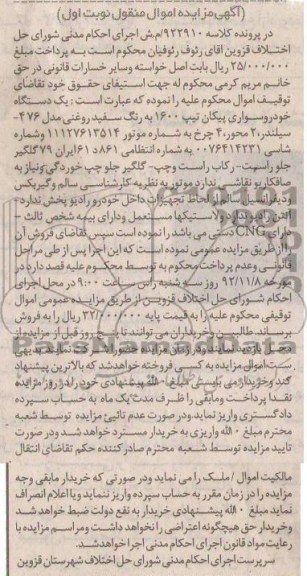 (آگهی مزایده اموال منقول نوبت اول)
در پرونده کلاسه ۹۲۲۹۱۰/م.ش اجرای احکام مدنی شورای حل
اختلاف قزوین آقای رئوف رئوفیان محکوم است به پرداخت مبلغ
۲۵/۰۰۰/۰۰۰ ریال بابت اصل خواسته وسایر خسارات قانونی در حق
خانم مریم کرمی محکوم له جهت استیفای حقوق خود تقاضای
توقیف اموال محکوم علیه را نموده که عبارت است : یک دستگاه
خودروسواری پیکان تیپ ۱۶۰۰ به رنگ سفید روغنی مدل ۷۶-۴
سیلندر،۲ محور،۴ چرخ به شماره موتور ۱۱۱۲۷۶۱۳۵۱۴ وشماره
شاسی ۰۰۷۶۴۱۴۲۳۱ به شماره انتظامی ۸۶۱د۶۱ ایران ۷۹ گلگیر
جلو راست- رکاب راست وچپ- گلگیر جلو چپ خوردگی ونیاز به
صافکاریو نقاشی ندارد موتور به نظریه کارشناسی سالم وگیربکس
ودیفرانسیل سالم از لحاظ تجهیزات داخل خودرو رادیو پخش ندارد-
آنتن رادیو ندارد ولاستیکها مستعمل ودارای بیمه شخص ثالث -
دارای CNG دستی می باشد را نموده است سپس تقاضای فروش آن
را از طریق مزایده عمومی نموده است که این اجرا پس از طی مراحل
قانونی وعدم پرداخت محکوم به توسط محکوم علیه قصد دارد در
مورخه ۹۲/۱۱/۸ روز سه شنبه راس ساعت ۹:۰۰ در محل اجرای
احکام شورای حل اختلاف قزوین از طریق مزایده عمومی اموال
توقیفی محکوم علیه را به قیمت پایه ۳۲/۰۰۰/۰۰۰ ریال را به فروش
برساند. طالبین وخریداران می توانند تا پنج روز قبل از مزایده از
محل بازدید نمایند ودر زمان مزایده حضور داشته باشند بدیهی
ست اموال مزایده به کسی فروخته خواهد شد که بالاترین پیشنهاد
کند وخریدار می بایستی مبلغ ۱۰٪ پیشنهادی خود را در روز مزایده
نقدا پرداخت ومابقی را ظرف مدت یک ماه به حساب سپرده
دادگستری واریز نماید.ودر صورت عدم تائیی مزایده توسط شعبه
محترم مبلغ ۱۰٪ واریزی به خریدار مسترد خواهد شد ودر صورت
تایید مزایده توسط شعبه محترم صادر کننده حکم تقاضای انتقال
مالکیت اموال / ملک را می نماید ودر صورتی که خریدار مابقی وجه
مزایده را در زمان مقرر به حساب سپرده واریز ننماید ویا اعلام انصراف
نماید مبلغ ۱۰٪ پیشنهادی خریدار به نفع دولت ضبط خواهد شد
وخریدار حق هیچگونه اعتراضی را نخواهد داشت ومراسم مزایده با
رعایت مواد قانون اجرای احکام مدنی اجرا خواهد شد.
سرپرست اجرای احکام مدنی شورای حل اختلاف شهرستان قزوین